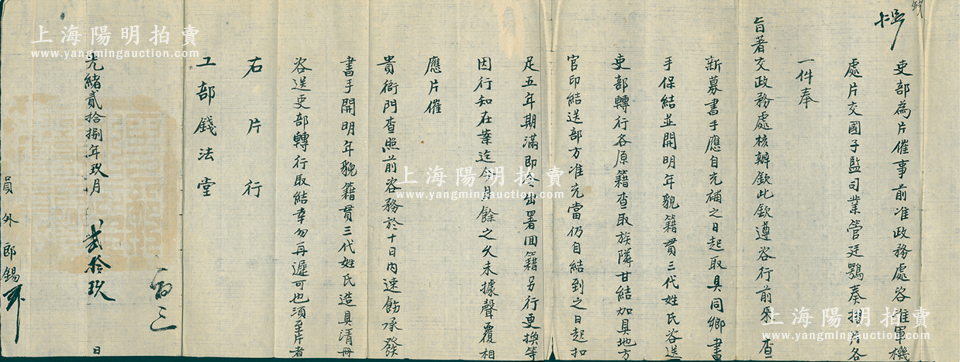 吏部為片催事前准政務處咨准軍機
處片交國子監司業管廷鶚奏摺片各
一件奉
旨著交政務處核辦欽此欽遵咨行前來查
新募書手應自充補之日起取具同鄉書
手保結並開明年貌籍貫三代姓氏咨送
吏部轉行各原籍查取族隣甘結加具地方
官印結送部方准充當仍自結到之日起扣
足五年期滿即令出署回籍另行更換等
因行知在案迄今月餘之久未據聲覆相
應片催
貴衙門查照前咨務於十日內速飭承發
書手開明年貌籍貫三代姓氏造具清冊
咨送吏部轉行取結幸勿再遲可也須至片者
右片行
工部錢法堂
光緒貳拾捌年玖月 貳拾玖 日
員外郎錫
上海陽明拍賣
www.yangmingauction.com
上海陽明拍賣
www.yangmingauction.com
上海陽明拍賣
www.yangmingauction.com
上海陽明拍賣
www.yangmingauction.com
上海陽明拍賣
www.yangmingauction.com